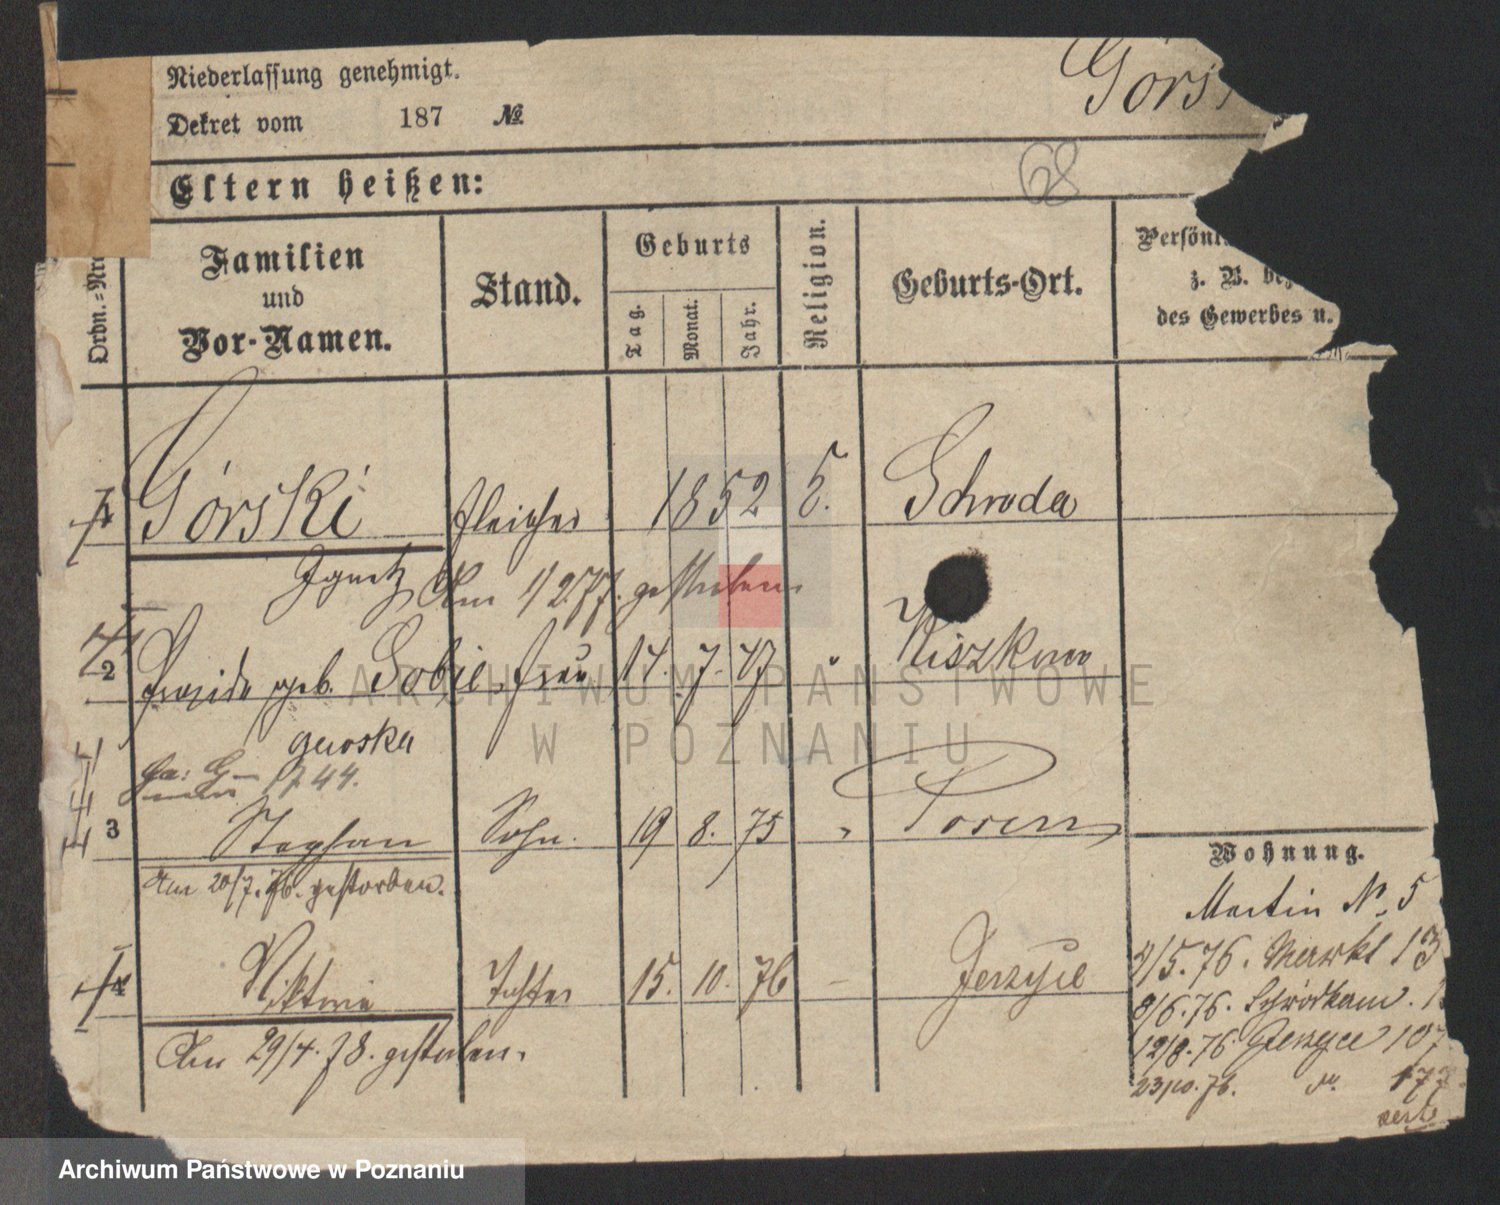 Niederlassung genehmigt.
Górs
Dekret vom 187 №
68
Eltern heißen:
Ordn.=Nro
Familien und Vor-Namen.
Stand.
Geburts
Tag.
Monat.
Jahr.
Religion.
Geburts-Ort.
Persönl
z. B. be
des Gewerbes u.
1 Górski 1852 Schroda
Ignatz Am 1/2.77. gestorben
2 geb. Sobie frau 14. 7. 47 Kiszkowo
1744.
3 Stephan Sohn. 19 8. 75 " Posen
Am 20/7.76. gestorben.
Wohnung.
Martin N. 5
4 Viktoria Tochter 15. 10. 76 – Jerzyce
Am 29/4.78. gestorben.
9/5.76. Markt 13
8/6.76. Schrodkam.
12/8.76. Jerzyce 107
23/10.76. do. 177
ARCHIWUM PAŃSTWOWE
W POZNANIU
Archiwum Państwowe w Poznaniu